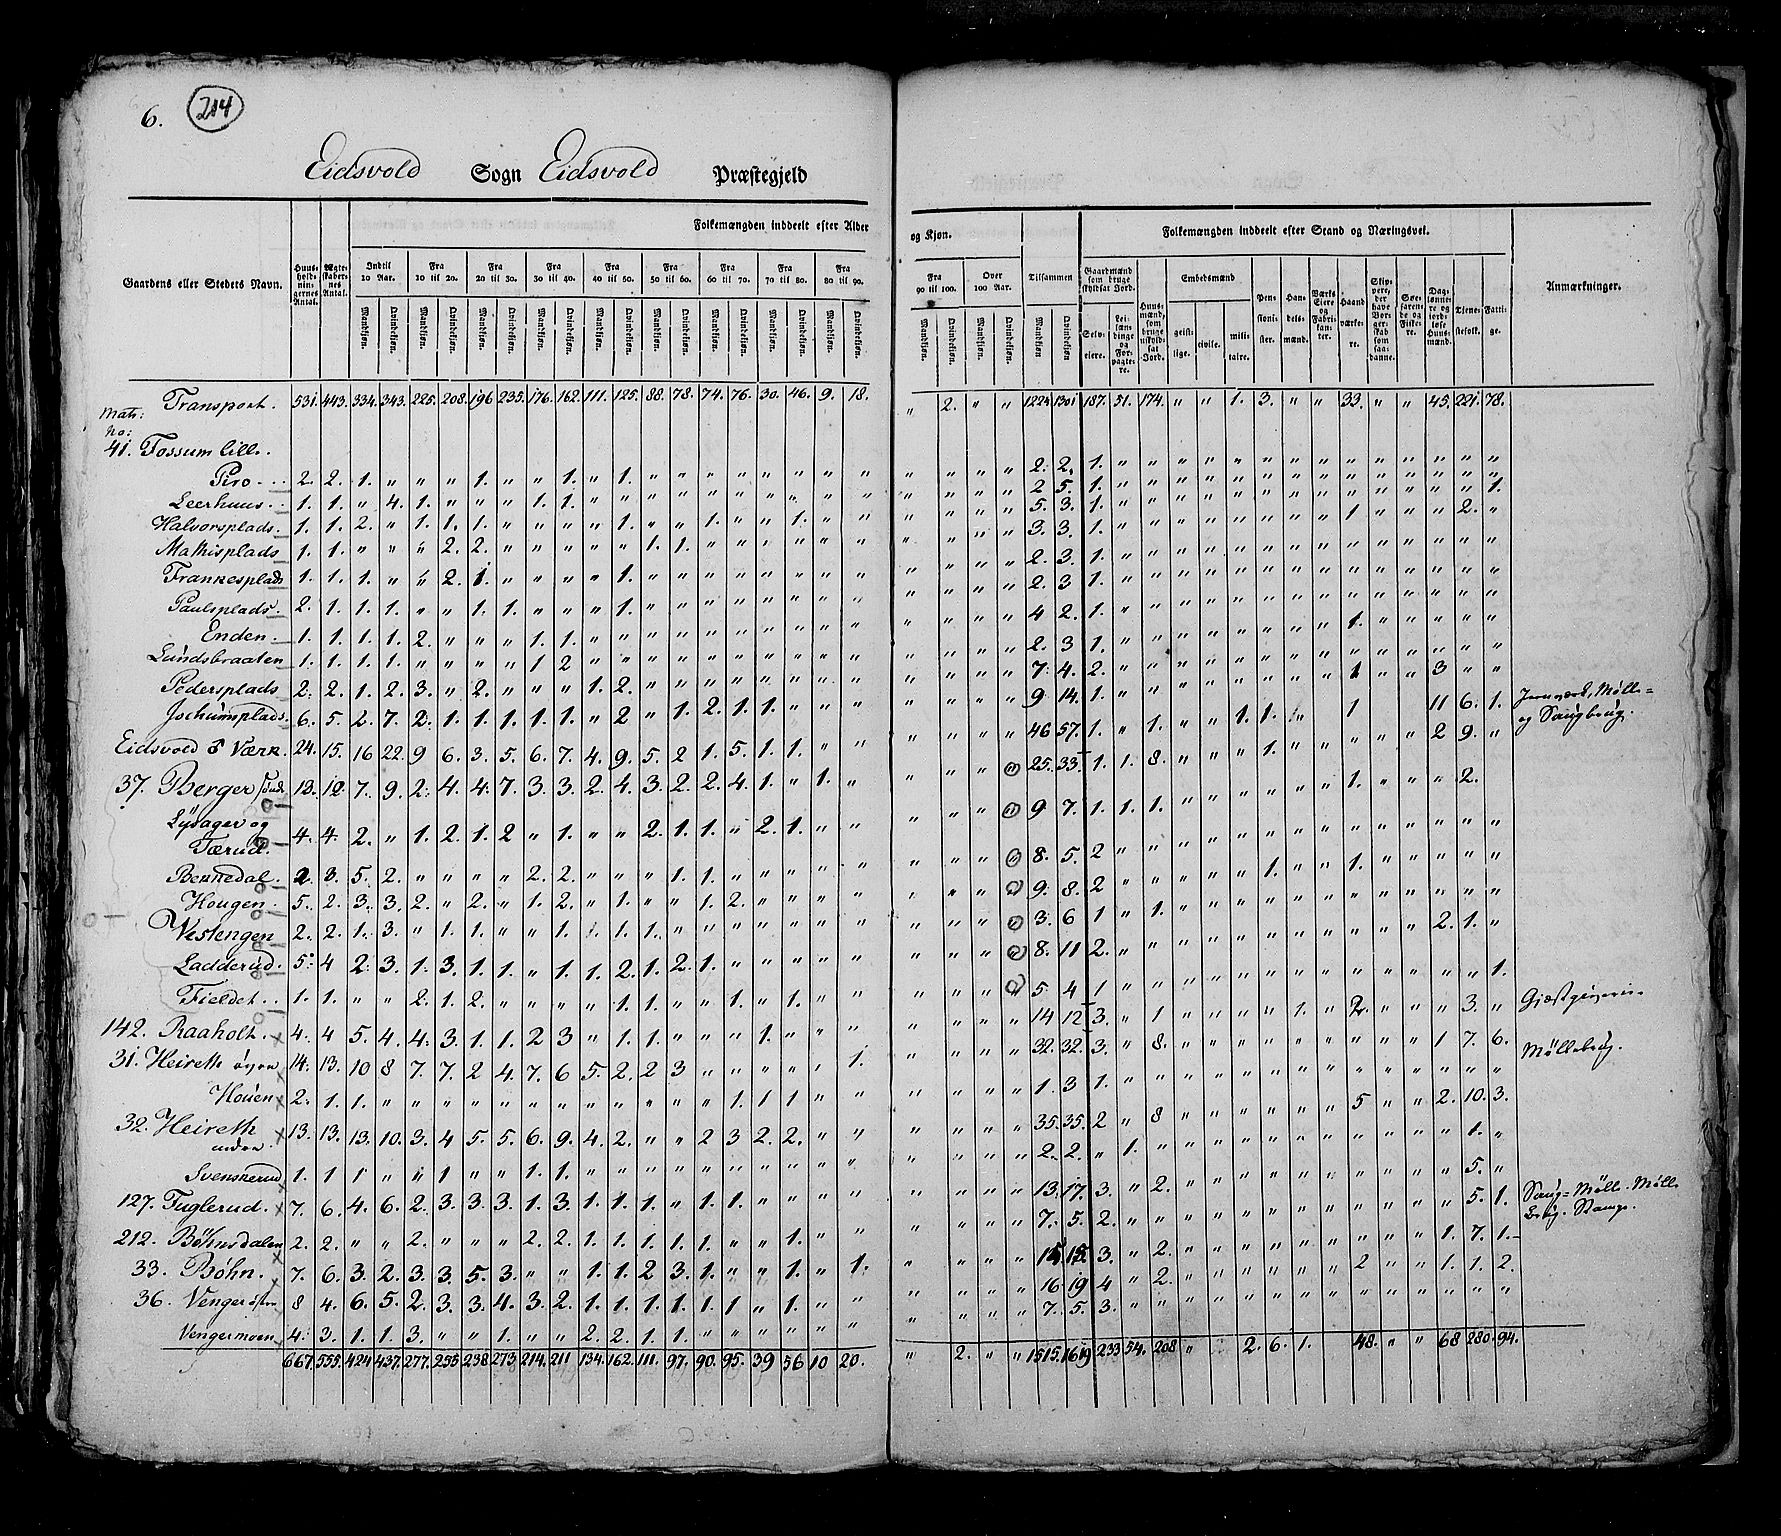 6. 214
Eidsvold Sogn Eidsvold Præstegjeld
Gaardens eller Steders Navn. Huus-holdningernes Antal. Ægteskabernes Antal. Folkemængden inddeelt efter Alder og Kjøn. Tilsammen Folkemængden inddeelt efter Stand og Næringsvei. Anmærkninger.
Indtil 10 Aar. Fra 10 til 20. Fra 20 til 30. Fra 30 til 40. Fra 40 til 50. Fra 50 til 60. Fra 60 til 70. Fra 70 til 80. Fra 80 til 90. Fra 90 til 100. Over 100 Aar. Gaardmænd som bruge skyldsat Jord. Embedsmænd
Mandkjøn. Qvindekjøn. Selveiere. Leilændinge og Forpagtere. Huusmænd, som bruge uskyldsat Jord. geistlige. civile. militaire. Pensionister. Handelsmænd. Værks Eiere og Fabrikanter. Haandværkere. Skippere, der have Borgerskab som saadanne. Søefarende og Fiskere. Daglønnere og jordløse Huusmænd. Tjenestefolk. Fattige.
Transport. 531. 443. 334. 343. 225. 208. 196 235. 176. 162. 111. 125. 88. 78. 74. 76. 30. 46. 9. 18. " 2. " " 1224 1301 187. 51. 174. " " 1. 3. " " 33. " " 45. 221. 78.
Matr: No:
41. Fossum lille.
Piro 2. 2. 1. " " " 1. " " 1. " 1. " " " " " " " " " " " " 2. 2. 1. " " " " " " " " " " " " " "
Leerhuus. 1. 1. " 4. 1. " " " 1. 1. " " " " " " " " " " " " " " 2 5. 1. " " " " " " " " " " " " " 1.
Halvorsplads. 1. 1. 2. " 1. 1. 1. " " " " 1. " " 1. " " 1. " " " " " " 5. 3. 1. " " " " " " " " 1 " " " 2. "
Mathisplads 1. 1. " " " 2. 2. " " " " " 1. 1. " " " " " " " " " " 3. 3. 1. " " " " " " " " " " " " " "
Frankesplads 1. 1. 1. " " 2. 1. " " " " 1. " " " " " " " " " " " " 2. 3. 1. " " " " " " " " " " " " " "
Paulsplads. 2. 1. 1. 1. " " 1. 1. " " " 1. " " " " " " " " " " " " 2. 3 1. " " " " " " " " " " " " " "
Enden. 1. 1. 1. 1. 2. " " " 1. 1. " " " " " " " " " " " " " " 4 2. 1. " " " " " " " " 1. " " " " "
Lundsbraaten 1. 1. 1. 1. " " " " 1 2 " " " " " " " " " " " " " " 2. 3 1. " " " " " " " " " " " " " "
Pedersplads 2. 2. 1. 2. 3. " 2. " " " 1. 2. " " " " " " " " " " " " 7. 4. 2. " " " " " " " " 1 " " 3 " "
Jochumsplads. 6. 5. 2. 7. 2. 1. 1. 1. 1. 1. " 2 " 1. 2. 1. 1. " " " " " " " 9 14. 1. " " " " " " " " " " " 11 6. 1.
Eidsvold Værk. 24. 15. 16 22. 9 6. 3. 5. 6. 7. 4. 9. 5. 2 1. 5. 1. 1. " " " " " " 46 57. 1. " 1. " " 1. 1. " 1 " " 2 9. " Jernværk, Mølle= og Saugbrug.
37. Berger 13. 12. 7. 9. 2. 4. 4. 7. 3. 3. 2. 4. 3. 2. 2. 4. 1. " 1. " " " " " 25. 33. 1. 1. 8. " " " 1. " " 1. " " " 2.
Lysager og
Tærud. 4. 4. 2. " 1. 2. 1. 2 " 1. " " 2. 1. 1. " 2. 1. " " " " " " 9 7. 1. 1. 1. " " " " " " " " " " " "
Bennedal. 2. 3. 5. 2. " " " " 2. 2. " " " 1. 1. " " " " " " " " " 8. 5. 2 " " " " " 1. " " 1. " " " " "
Hougen. 5. 2. 3. 3. 2. " 2. " 1. 2. " 1. " " 1. 2. " " " " " " " " 9. 8. 2 " " " " " " " " " " " " " "
Vestengen 2. 2. 1. 3. " 1. 1. " " 1. 1. 1. 1. " " " " " " " " " " " 3. 6 1 " 1. " " " " " " " " " 2. 1. "
Ladderud. 5. 4 2. 3. 1. 3. 1. 1. " 1. 1. 2. 1. 2. 1. " " " " " " " " " 8. 11 2. " " " " " " " " " " " " " 1.
Fieldet. 1. 1. " " 2. 1. 2. " " " " 1. 1. " " 1. " 1. " " " " " " 5. 4 1 " " " " " " " " " " " " " "
142. Raaholt. 4. 4 5. 4. 4. 3. 1. 1. 2 3 " 1. 1. " " " 1. " " " " " " " 14 12 3. " 1 " " " " 1. " 2. " " " 3. " Gjæstgiverie.
31. Heireth øvre 14. 13. 10 8 7. 7. 2 4. 7. 6 5. 2. 2 3 " " " " " 1. " " " " 32. 32. 3. " 8. " " " " " " " " " 1 7. 6. Møllebrug.
Houen 2. 1. 1. " " " " " " " " " " " " 1. 1 1 " " " " " " 1. 3 1. " " " " " " " " " " " " " "
32. Heireth
nedre 13. 13. 13. 10. 3. 4 5. 5. 6. 9. 4. 2. " " 2 3 2. 2. " " " " " " 35. 35. 2 " 8 " " " " " " 5 " " 2. 10. 3.
Svenskerud 1. 1 1 " " 1 " " 1. 1. " " " " " " " " " " " " " " 2. 2. " 1. " " " " " " " " " " " 1. "
127. Fuglerud. 7. 6. 4. 6. 2. 3. 3. 3. 1. 3. 1. 1. 1. " 1. 1. " " " " " " " " 13. 17. 3. " 2. " " " " " " " " " " 5. " Saug= Mølle.
212. Bøhnsdalen 2. 2. " " 2. " " " 2. 2. 1. 1. 1. 1. 1. " " 1. " " " " " " 7. 5. 2. " " " " " " " " " " " " 5. 1. Stampe.
33. Bøhn. 7. 6. 3. 2. 3. 3. 5. 3. " " 1. 1. 2 3. 1. " " 1. " 1. " " " " 15. 15. 3. " 2. " " " " " " " " " 1. 7. 1.
36. Venger østre 8 4. 6. 5. 2. 3. 3. 4. 3. 2. 1. 1. 1. 1. 1. 1 " 1. " " " " " " 16. 19 4 " 2. " " " " " " 2 " " 1. 1. 2.
Vengermoen 4. 3. 1. 1. 3. " " 1. " " 2. 2. 1. 1. " " " " " " " " " " 7. 5. 3. " " " " " " " " " " " " " "
667. 555. 424 437. 277. 255 238 273 214. 211 134. 162. 111. 97. 90. 95. 39 56 10 20. " 2. " " 1515. 1619 233 54. 208 " 2. 6. 1. 48. " " 68 280. 94.